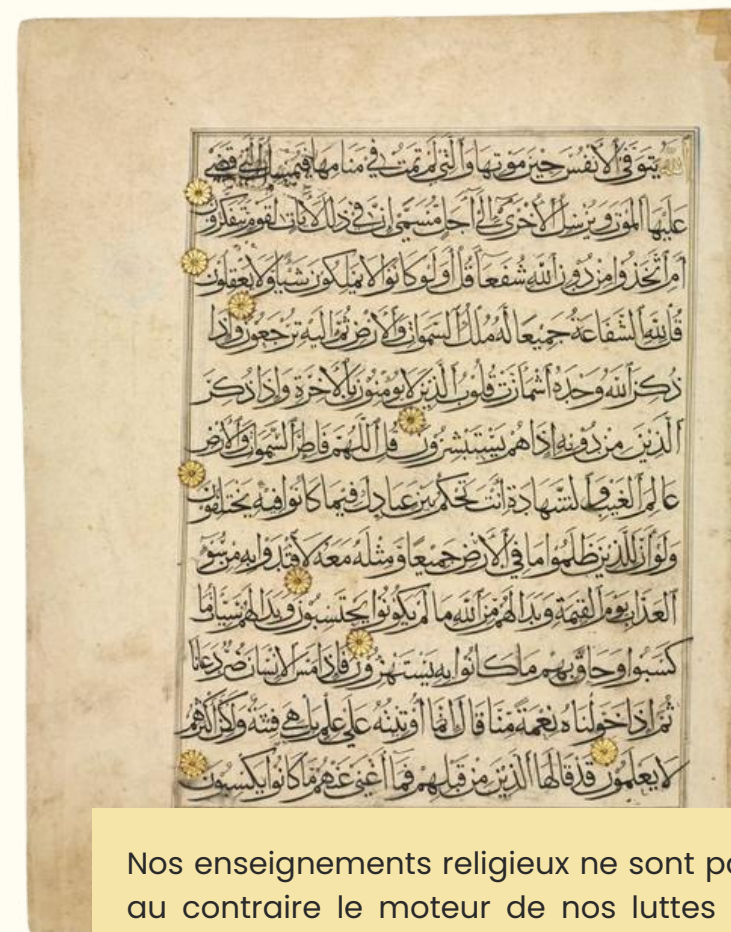 الله يتوفى الأنفس حين موتها والتي لم تمت في منامها فيمسك التي قضى
عليها الموت ويرسل الأخرى إلى أجل مسمى إن في ذلك لآيات لقوم يتفكرون
أم اتخذوا من دون الله شفعاء قل أولو كانوا لا يملكون شيئا ولا يعقلون
قل لله الشفاعة جميعا له ملك السموات والأرض ثم إليه ترجعون وإذا
ذكر الله وحده اشمأزت قلوب الذين لا يؤمنون بالآخرة وإذا ذكر
الذين من دونه إذا هم يستبشرون قل اللهم فاطر السموات والأرض
عالم الغيب والشهادة أنت تحكم بين عبادك فيما كانوا فيه يختلفون
ولو أن للذين ظلموا ما في الأرض جميعا ومثله معه لافتدوا به من سوء
العذاب يوم القيمة وبدا لهم من الله ما لم يكونوا يحتسبون وبدا لهم سيئات ما
كسبوا وحاق بهم ما كانوا به يستهزؤن فإذا مس الإنسان ضر دعانا
ثم إذا خولناه نعمة منا قال إنما أوتيته على علم بل هي فتنة ولكن أكثرهم
لا يعلمون قد قالها الذين من قبلهم فما أغنى عنهم ما كانوا يكسبون
Nos enseignements religieux ne sont
au contraire le moteur de nos luttes